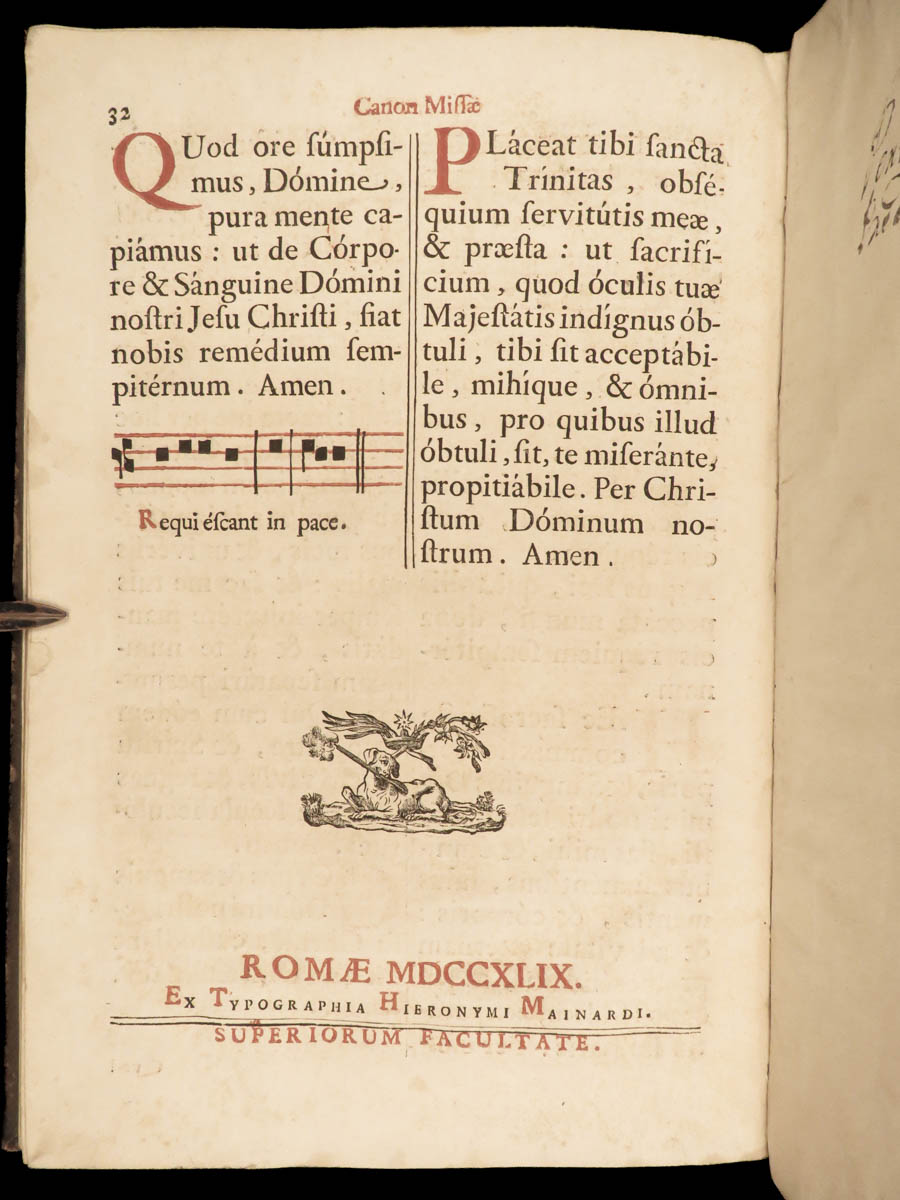 32
Canon Missæ
QUod ore ſúmpſi-
mus, Dómine,
pura mente ca-
piámus : ut de Córpo-
re & Sánguine Dómini
noſtri Jeſu Chriſti, fiat
nobis remédium ſem-
pitérnum. Amen.
Requi éſcant in pace.
PLáceat tibi ſancta
Trínitas, obſé-
quium ſervitútis meæ,
& præſta : ut ſacrifí-
cium, quod óculis tuæ
Majeſtátis indígnus ób-
tuli, tibi ſit acceptábi-
le, mihíque, & ómni-
bus, pro quibus illud
óbtuli, ſit, te miſeránte,
propitiábile. Per Chri-
ſtum Dóminum no-
ſtrum. Amen.
ROMÆ MDCCXLIX.
EX TYPOGRAPHIA HIERONYMI MAINARDI.
SUPERIORUM FACULTATE.